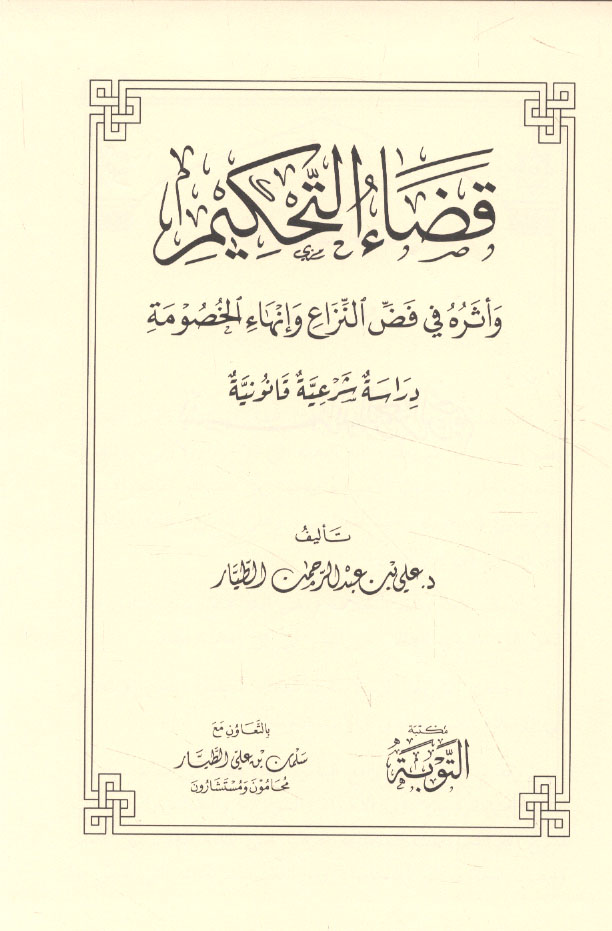 قَضَاءُ التَّحْكِيمِ
وَأَثَرُهُ فِي فَضِّ النِّزَاعِ وَإِنْهَاءِ الْخُصُومَةِ
دِرَاسَةٌ شَرْعِيَّةٌ قَانُونِيَّةٌ
تَأليفُ
د. علي بن عبد الرحمن الطيار
مكتبة
التَّوبَة
بِالتَّعَاوُنِ مَعَ
سلمان بن علي الطيَّار
مُحَامُونَ وَمُسْتَشَارُونَ